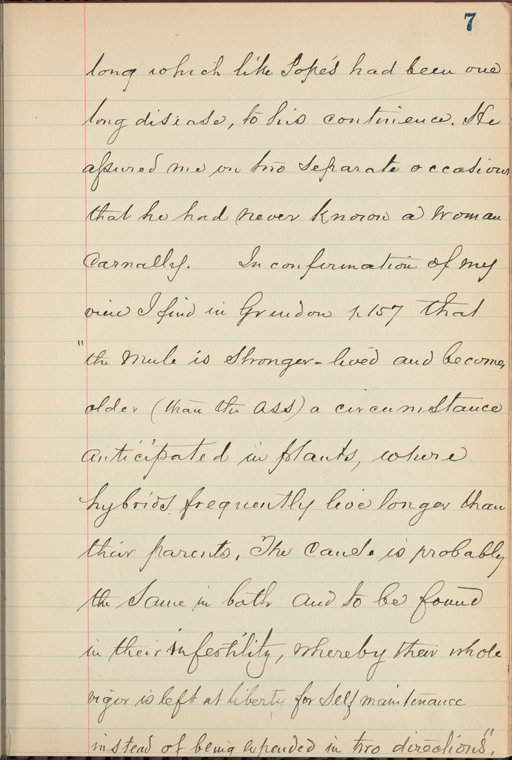 7
long which like Pope's had been one
long disease, to his continence. He
assured me on two separate occasions
that he had never known a woman
Carnally. In confirmation of my
view I find in Grindon p 157 that
"the Mule is stronger-lived and becomes
older (than the ass) a circumstance
anticipated in plants, where
hybrids frequently live longer than
their parents. The cause is probably
the same in both and to be found
in their infertility, whereby their whole
vigor is left at liberty for self maintenance
instead of being expended in two directions".